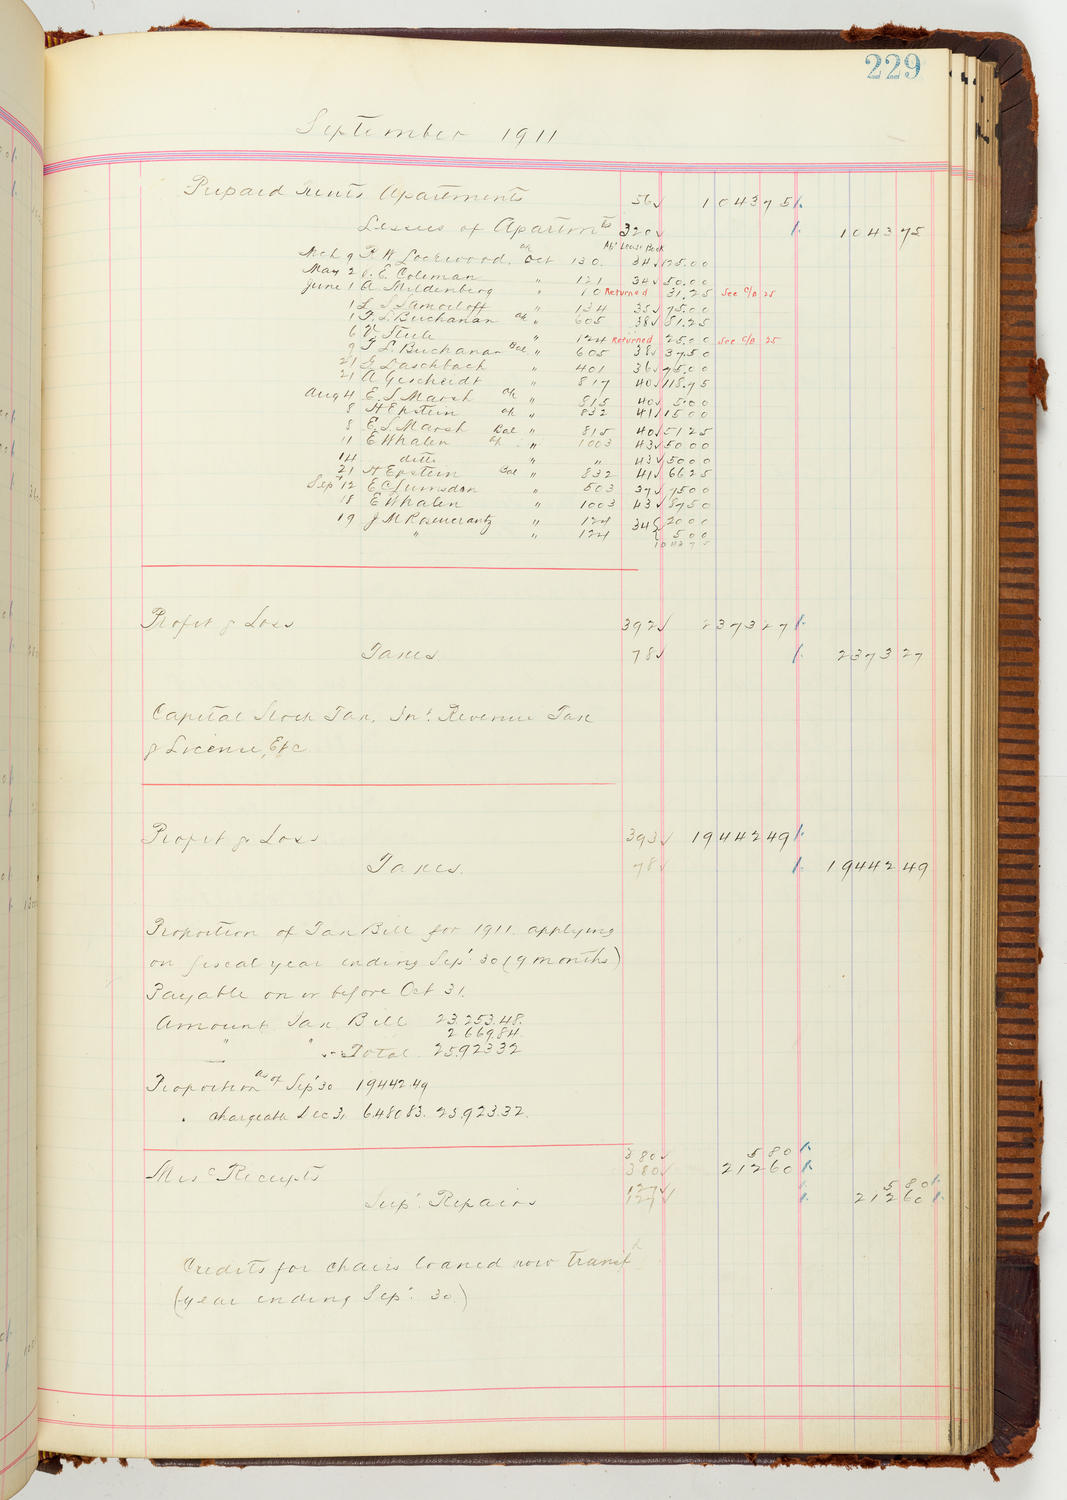 229
September 1911
Prepaid rents Apartments 56✓ 1043 75
Lessees of Apartmts 320✓ 1043 75
Lease Book
Mch 9 R W Lockwood. ok Oct 130. 34✓ 125.00
May 2 J. E. Coleman " 121 34✓ 50.00
June 1 A Mildenberg " 10 Returned 31.25 See C/B 25
1 L. S Samoiloff " 134 35✓ 75.00
1 T. L. Buchanan ok " 605 38✓ 51.25
6 V. Steele " 124 Returned 25.00 See C/B 25
9 T L Buchanan Bal " 605 38✓ 37.50
21 G Laschbach " 401 36✓ 75.00
21 A Gescheidt " 817 40✓ 118.75
Aug 4 E. S. Marsh ok " 815 40✓ 5.00
8 H Epstein ok " 832 41✓ 15 00
8 E. S. Marsh Bal " 815 40✓ 51 25
11 E Whalen ok " 1003 43✓ 50 00
14 ditto " " 43✓ 50 00
21 H Epstein Bal " 832 41✓ 66 25
Sept 12 E C Lumsdon " 503 37✓ 75 00
18 E Whalen " 1003 43✓ 87 50
19 J M Rosencrantz " 124 34 20 00
" " 124 5 00
1043 75
Profit & Loss 392✓ 2373 27
Taxes 78✓ 2373 27
Capital Stock Tax, Int. Revenue Tax
& License, Etc
Profit & Loss 393✓ 19442 49
Taxes. 78✓ 19442 49
Proportion of Tax Bill for 1911 applying
on fiscal year ending Sept 30 (9 months)
Payable on or before Oct 31.
Amount Tax Bill 23.253.48.
2 669.84.
" " Total 25.923 32
Proportion as of Sept 30 19442.49
" chargeable Dec 31 6480.83. 25,923.32.
380✓ 5 80
Misc Receipts 380✓ 212 60
127✓ 5 80
Supt. Repairs 127✓ 212 60
Credits for chairs loaned now transf
(year ending Sept. 30.)